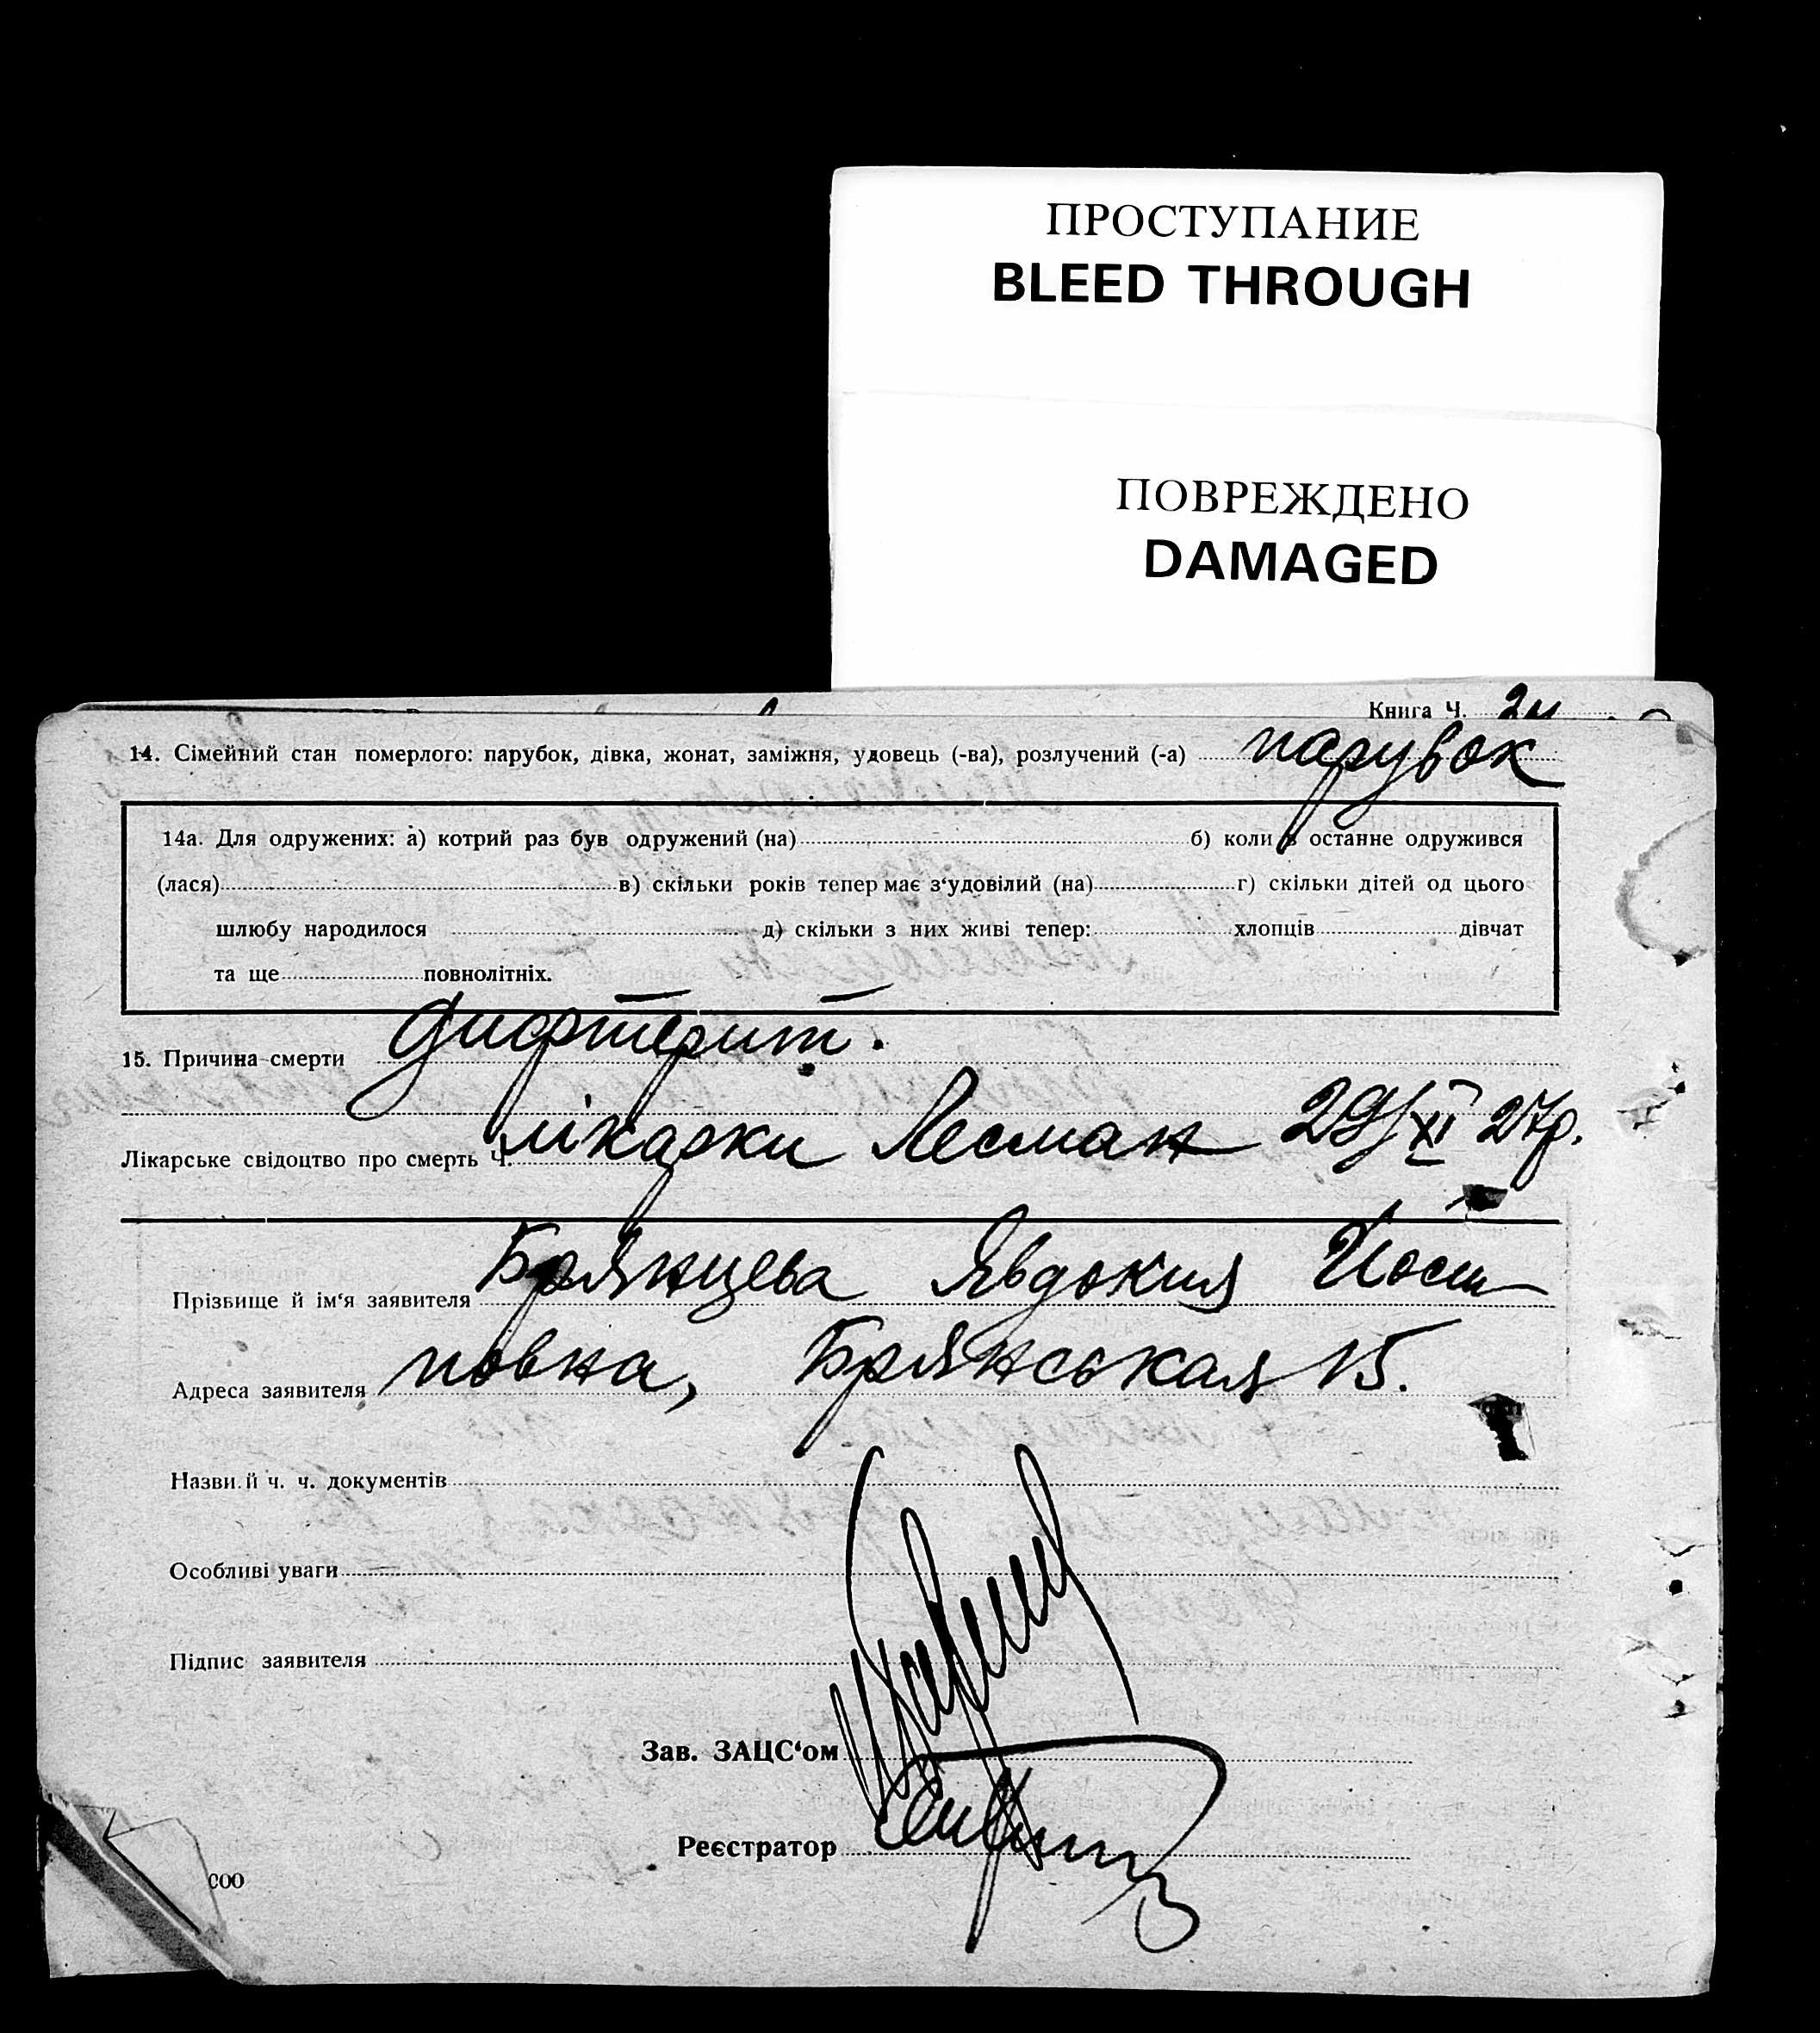 ПРОСТУПАНИЕ
BLEED THROUGH
ПОВРЕЖДЕНО
DAMAGED
Книга Ч.
14. Сімейний стан померлого: парубок, дівка, жонат, заміжня, удовець (-ва), розлучений (-а) парубок
14а. Для одружених: а) котрий раз був одружений (на) б) коли в останне одружився
(лася) в) скільки років тепер має з‘удовілий (на) г) скільки дітей од цього
шлюбу народилося д) скільки з них живі тепер: хлопців дівчат
та ще повнолітніх.
15. Причина смерти дифтерит.
Лікарське свідоцтво про смерть Ч. лікарки Лесман 29/XI 27р.
Прізвище й ім‘я заявителя Брянцева Явдокия Йоси
Адреса заявителя повна, Брянськая 15.
Назви й ч. ч. документів
Особливі уваги
Підпис заявителя
Зав. ЗАЦС‘ом
Реєстратор
СОО